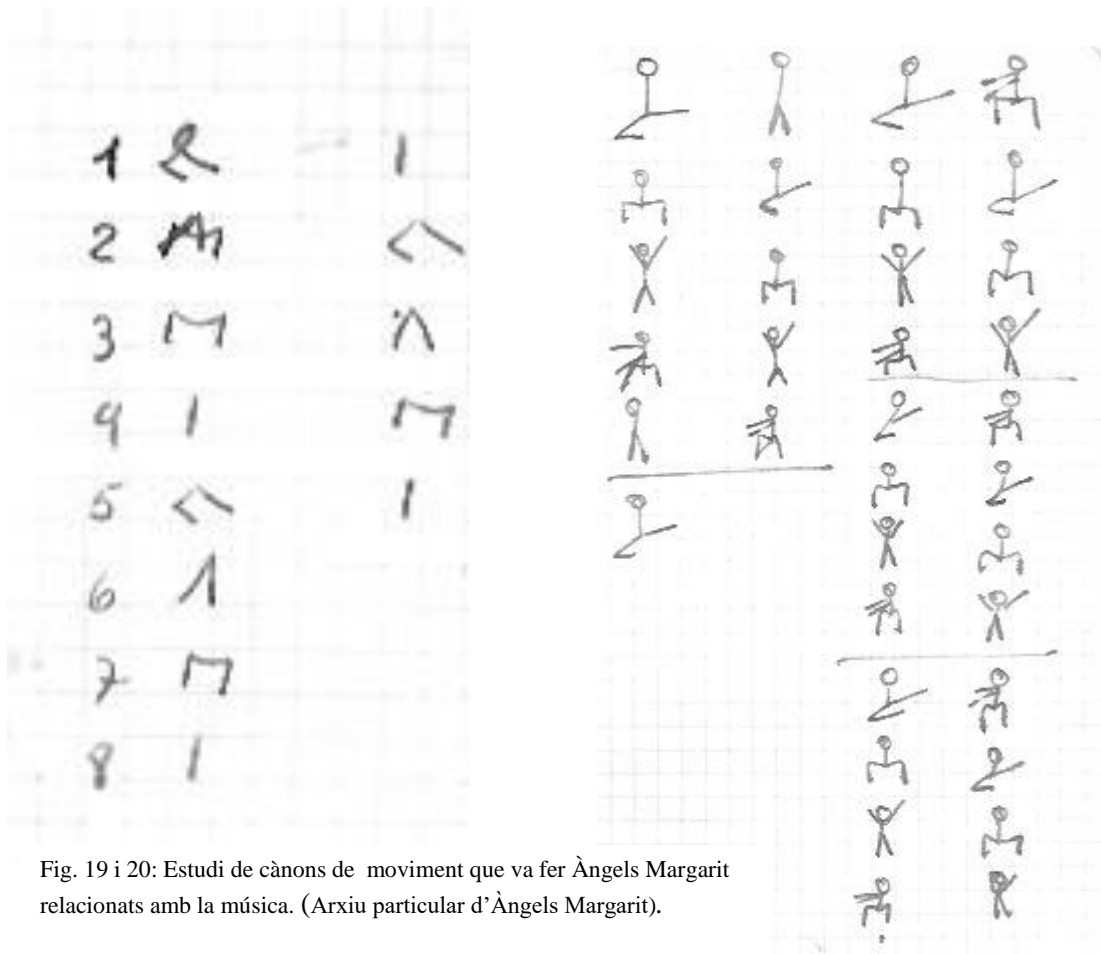 1
2
3
4
5
6
7
8
Fig. 19 i 20: Estudi de cànons de moviment que va fer Àngels Margarit
relacionats amb la música. (Arxiu particular d'Àngels Margarit).